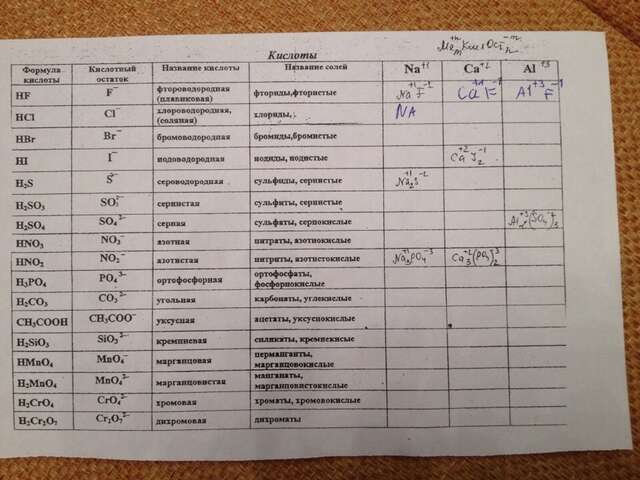 Me m^+n КислОст n^-m
Кислоты
Формула кислоты | Кислотный остаток | Название кислоты | Название солей | Na⁺¹ | Ca⁺² | Al⁺³
HF | F⁻ | фтороводородная (плавиковая) | фториды,фтористые | Na⁺¹F⁻¹ | Ca⁺²F⁻¹ | Al⁺³F⁻¹
HCl | Cl⁻ | хлороводородная, (соляная) | хлориды, | NA
HBr | Br⁻ | бромоводородная | бромиды,бромистые
HI | I⁻ | иодоводородная | иодиды, иодистые | Ca⁺²J₂⁻¹
H₂S | S²⁻ | сероводородная | сульфиды, сернистые | Na₂⁺¹S⁻²
H₂SO₃ | SO₃²⁻ | сернистая | сульфиты, сернистые
H₂SO₄ | SO₄²⁻ | серная | сульфаты, сернокислые | Al₂⁺³(SO₄)₃⁻²
HNO₃ | NO₃⁻ | азотная | нитраты, азотнокислые
HNO₂ | NO₂⁻ | азотистая | нитриты, азотистокислые | Na₃⁺¹PO₄⁻³ | Ca₃⁺²(PO₄)₂⁻³
H₃PO₄ | PO₄³⁻ | ортофосфорная | ортофосфаты, фосфорнокислые
H₂CO₃ | CO₃²⁻ | угольная | карбонаты, углекислые
CH₃COOH | CH₃COO⁻ | уксусная | ацетаты, уксуснокислые
H₂SiO₃ | SiO₃²⁻ | кремниевая | силикаты, кремнекислые
HMnO₄ | MnO₄⁻ | марганцовая | перманганты, марганцовокислые
H₂MnO₄ | MnO₄²⁻ | марганцовистая | манганаты, марганцовистокислые
H₂CrO₄ | CrO₄²⁻ | хромовая | хроматы, хромовокислые
H₂Cr₂O₇ | Cr₂O₇²⁻ | дихромовая | дихроматы